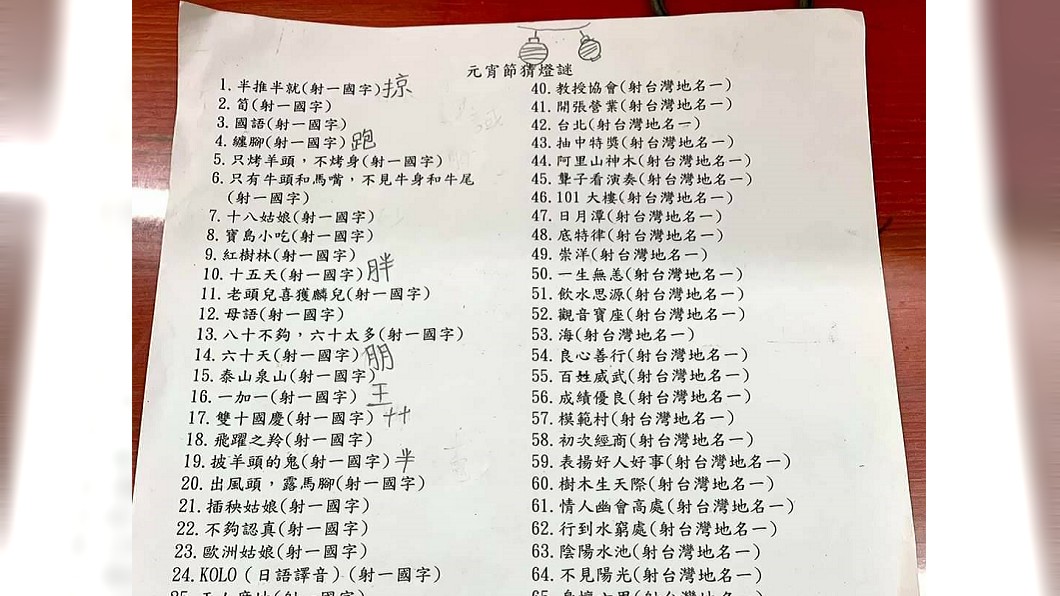 元宵節猜燈謎
1. 半推半就(射一國字)掠
2. 筍(射一國字)
3. 國語(射一國字)
4. 纏腳(射一國字)跑
5. 只烤羊頭，不烤身(射一國字)
6. 只有牛頭和馬嘴，不見牛身和牛尾
(射一國字)
7. 十八姑娘(射一國字)
8. 寶島小吃(射一國字)
9. 紅樹林(射一國字)
10. 十五天(射一國字)胖
11. 老頭兒喜獲麟兒(射一國字)
12. 母語(射一國字)
13. 八十不夠，六十太多(射一國字)
14. 六十天(射一國字)朋
15. 泰山泉山(射一國字)
16. 一加一(射一國字)王
17. 雙十國慶(射一國字)艹
18. 飛躍之羚(射一國字)
19. 披羊頭的鬼(射一國字)半
20. 出風頭，露馬腳(射一國字)
21. 插秧姑娘(射一國字)
22. 不夠認真(射一國字)
23. 歐洲姑娘(射一國字)
24. KOLO（日語譯音）(射一國字)
40. 教授協會(射台灣地名一)
41. 開張營業(射台灣地名一)
42. 台北(射台灣地名一)
43. 抽中特獎(射台灣地名一)
44. 阿里山神木(射台灣地名一)
45. 聾子看演奏(射台灣地名一)
46. 101 大樓(射台灣地名一)
47. 日月潭(射台灣地名一)
48. 底特律(射台灣地名一)
49. 崇洋(射台灣地名一)
50. 一生無恙(射台灣地名一)
51. 飲水思源(射台灣地名一)
52. 觀音寶座(射台灣地名一)
53. 海(射台灣地名一)
54. 良心善行(射台灣地名一)
55. 百姓威武(射台灣地名一)
56. 成績優良(射台灣地名一)
57. 模範村(射台灣地名一)
58. 初次經商(射台灣地名一)
59. 表揚好人好事(射台灣地名一)
60. 樹木生天際(射台灣地名一)
61. 情人幽會高處(射台灣地名一)
62. 行到水窮處(射台灣地名一)
63. 陰陽水池(射台灣地名一)
64. 不見陽光(射台灣地名一)